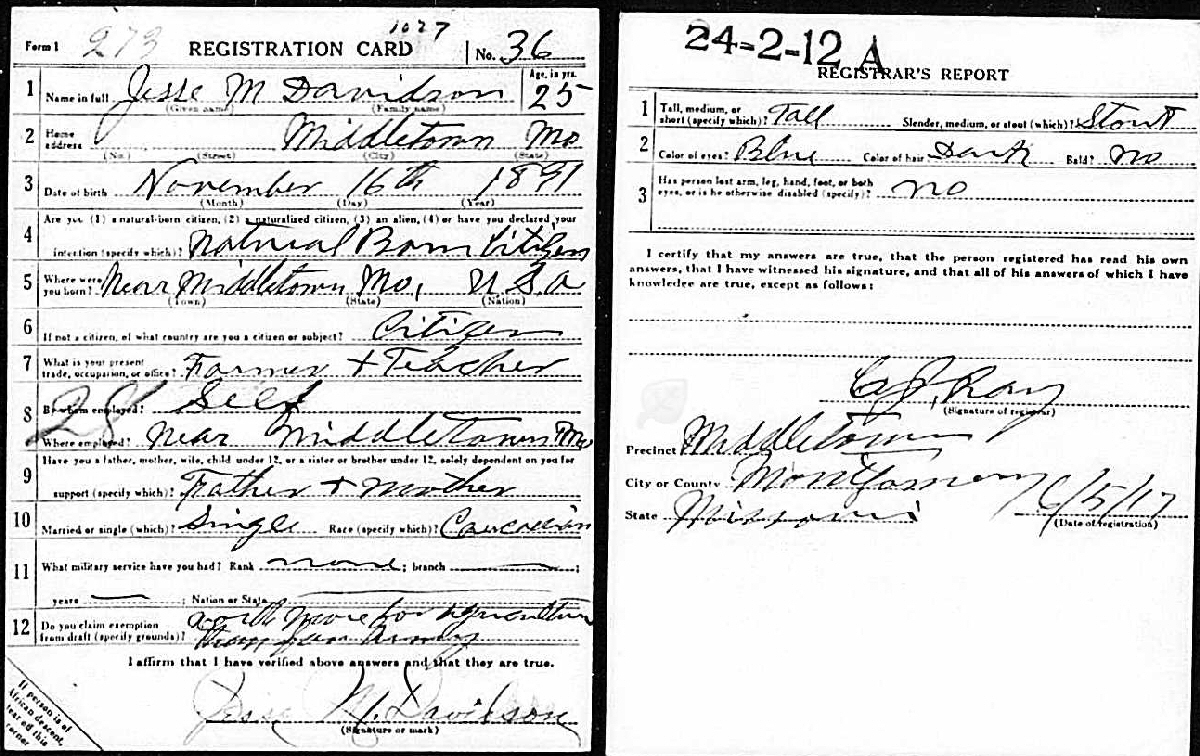 1027
Form 1 273 REGISTRATION CARD No. 36
1 Name in full Jesse M Davidson Age, in yrs. 25
(Given name) (Family name)
2 Home address Middletown Mo
(No.) (Street) (City) (State)
3 Date of birth November 16th 1891
(Month) (Day) (Year)
4 Are you (1) a natural-born citizen, (2) a naturalized citizen, (3) an alien, (4) or have you declared your
intention (specify which)? Natural Born Citizen
5 Where were you born? Near Middletown Mo, U.S.A
(Town) (State) (Nation)
6 If not a citizen, of what country are you a citizen or subject? Citizen
7 What is your present trade, occupation, or office? Farmer + Teacher
8 By whom employed? Self
28
Where employed? Near Middletown Mo
9 Have you a father, mother, wife, child under 12, or a sister or brother under 12, solely dependent on you for
support (specify which)? Father + Mother
10 Married or single (which)? Single Race (specify which)? Caucasian
11 What military service have you had? Rank none ; branch ;
years ; Nation or State
12 Do you claim exemption from draft (specify grounds)? worth more for agriculture
than for Army
I affirm that I have verified above answers and that they are true.
Jesse M. Davidson
(Signature or mark)
If person is of
African descent,
tear off this
corner
24-2-12 A
REGISTRAR'S REPORT
1 Tall, medium, or short (specify which)? Tall Slender, medium, or stout (which)? Stout
2 Color of eyes? Blue Color of hair Dark Bald? No
3 Has person lost arm, leg, hand, foot, or both eyes, or is he otherwise disabled (specify)? no
I certify that my answers are true, that the person registered has read his own
answers, that I have witnessed his signature, and that all of his answers of which I have
knowledge are true, except as follows:
Ray
(Signature of registrar)
Precinct Middletown
City or County Montgomery
State Missouri 6/5/17
(Date of registration)